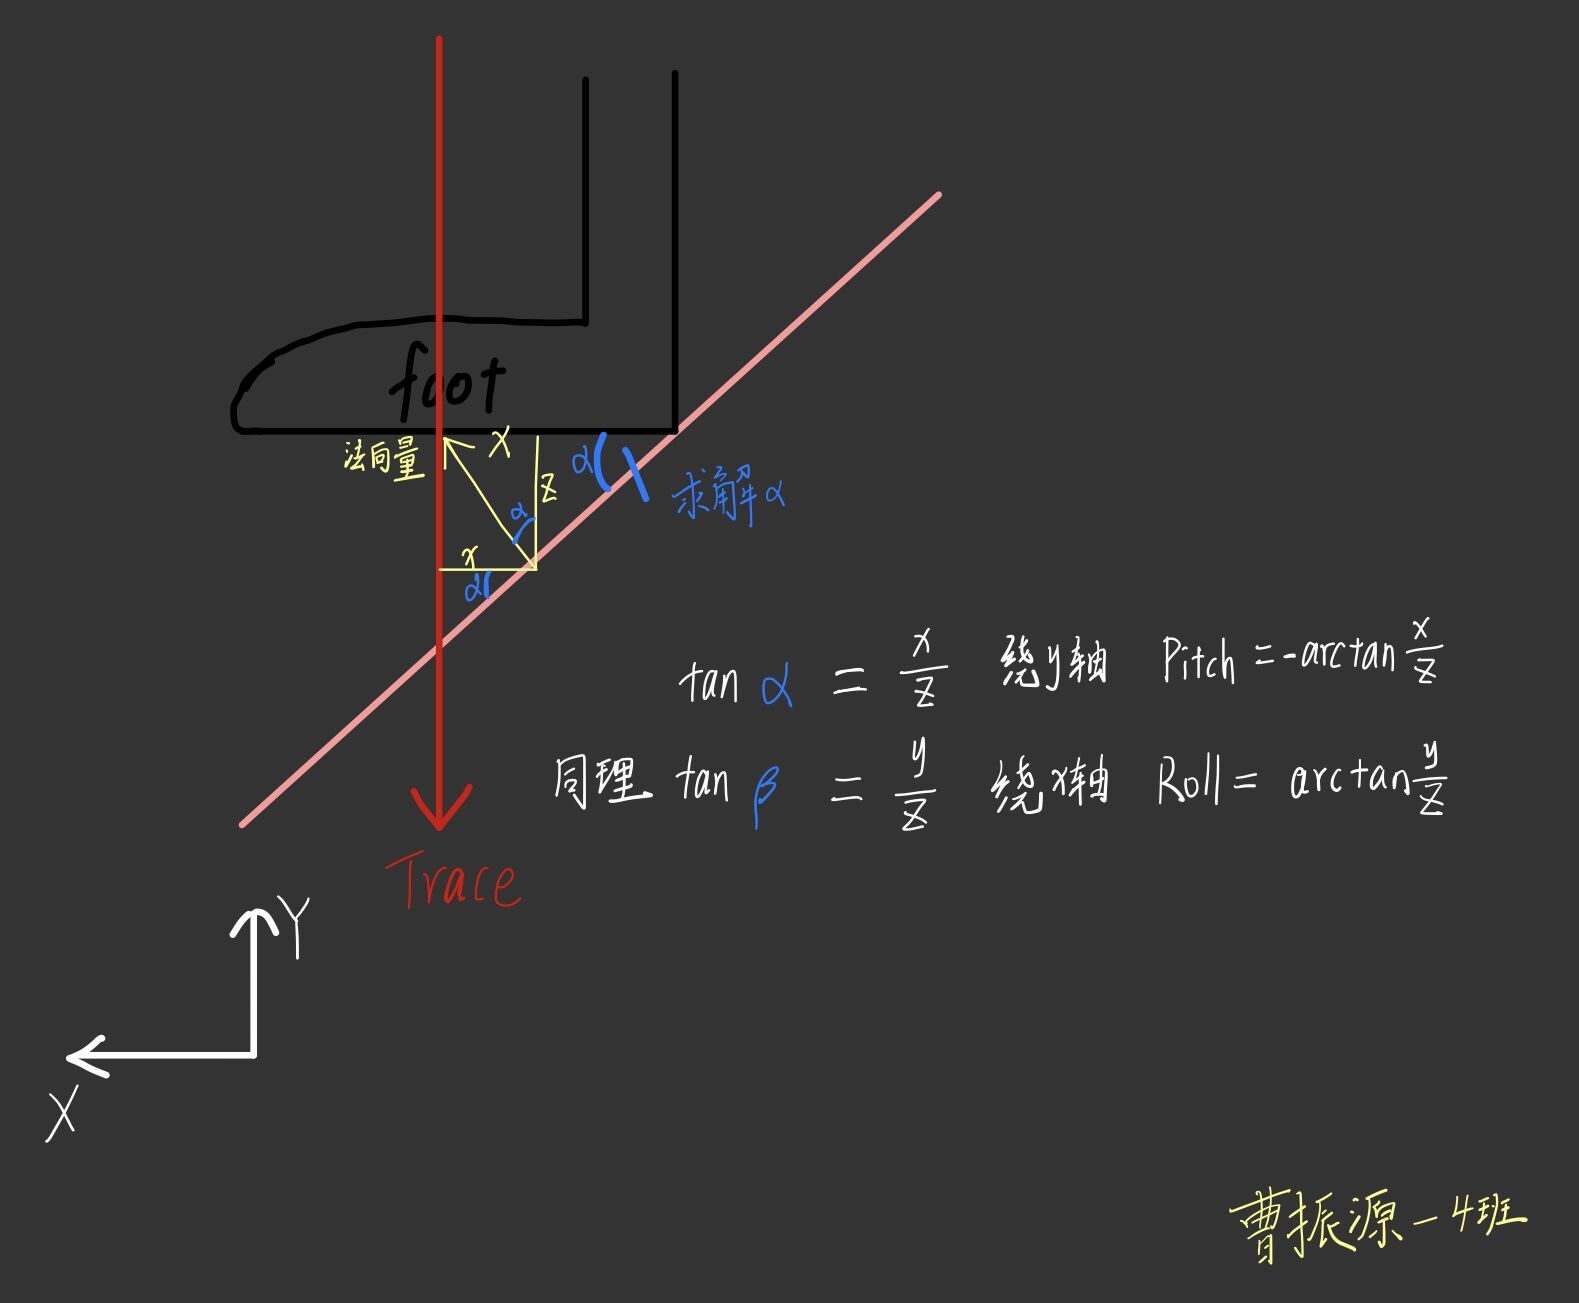 foot
法向量
X
Z
α
求解α
α
x
α
tan α = x/z 绕y轴 Pitch = -arctan x/z
同理 tan β = y/z 绕x轴 Roll = arctan y/z
Trace
Y
X
曹振源-4班